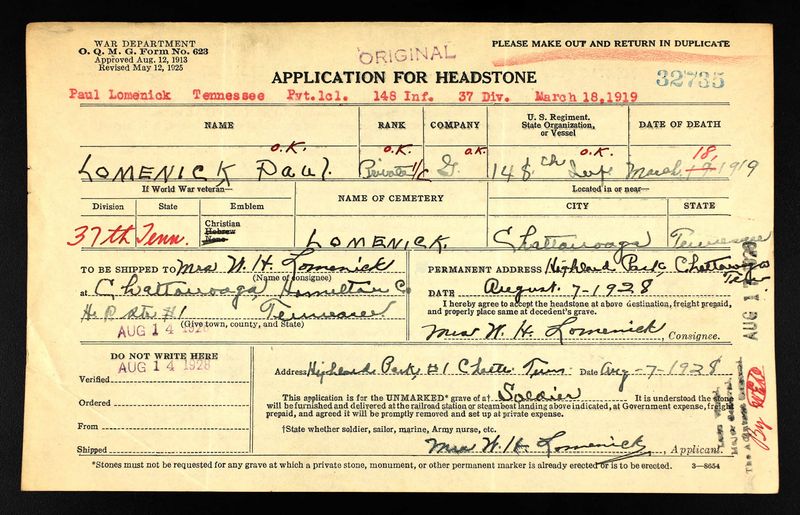 WAR DEPARTMENT
O. Q. M. G. Form No. 623
Approved Aug. 12, 1913
Revised May 12, 1925
ORIGINAL
PLEASE MAKE OUT AND RETURN IN DUPLICATE
APPLICATION FOR HEADSTONE
32735
Paul Lomenick Tennessee Pvt.lcl. 148 Inf. 37 Div. March 18,1919
NAME RANK COMPANY U. S. Regiment, State Organization, or Vessel DATE OF DEATH
O.K. O.K. O.K. O.K. 18,
LOMENICK Paul Private 1/c G. 148th Inf. March 19 1919
If World War veteran— Located in or near—
Division State Emblem NAME OF CEMETERY CITY STATE
Christian
Hebrew
None
37th Tenn. LOMENICK Chattanooga Tennessee
TO BE SHIPPED TO Mrs W. H. Lomenick
(Name of consignee)
at Chattanooga Hamilton Co
#1 Tennessee
(Give town, county, and State)
AUG 14 1928
PERMANENT ADDRESS Highland Park Chattanooga
Tenn
DATE August 7-1928
I hereby agree to accept the headstone at above destination, freight prepaid, and properly place same at decedent's grave.
Mrs W. H. Lomenick Consignee.
DO NOT WRITE HERE
AUG 14 1928
Verified
Ordered
From
Shipped
Address Highland Park, #1 Chatt. Tenn Date Aug-7-1928
This application is for the UNMARKED* grave of a† Soldier It is understood the stone
will be furnished and delivered at the railroad station or steamboat landing above indicated, at Government expense, freight
prepaid, and agreed it will be promptly removed and set up at private expense.
†State whether soldier, sailor, marine, Army nurse, etc.
Mrs W. H. Lomenick, Applicant.
*Stones must not be requested for any grave at which a private stone, monument, or other permanent marker is already erected or is to be erected. 3—8654
AUG 1 1928
Major General
The Adjutant General
By